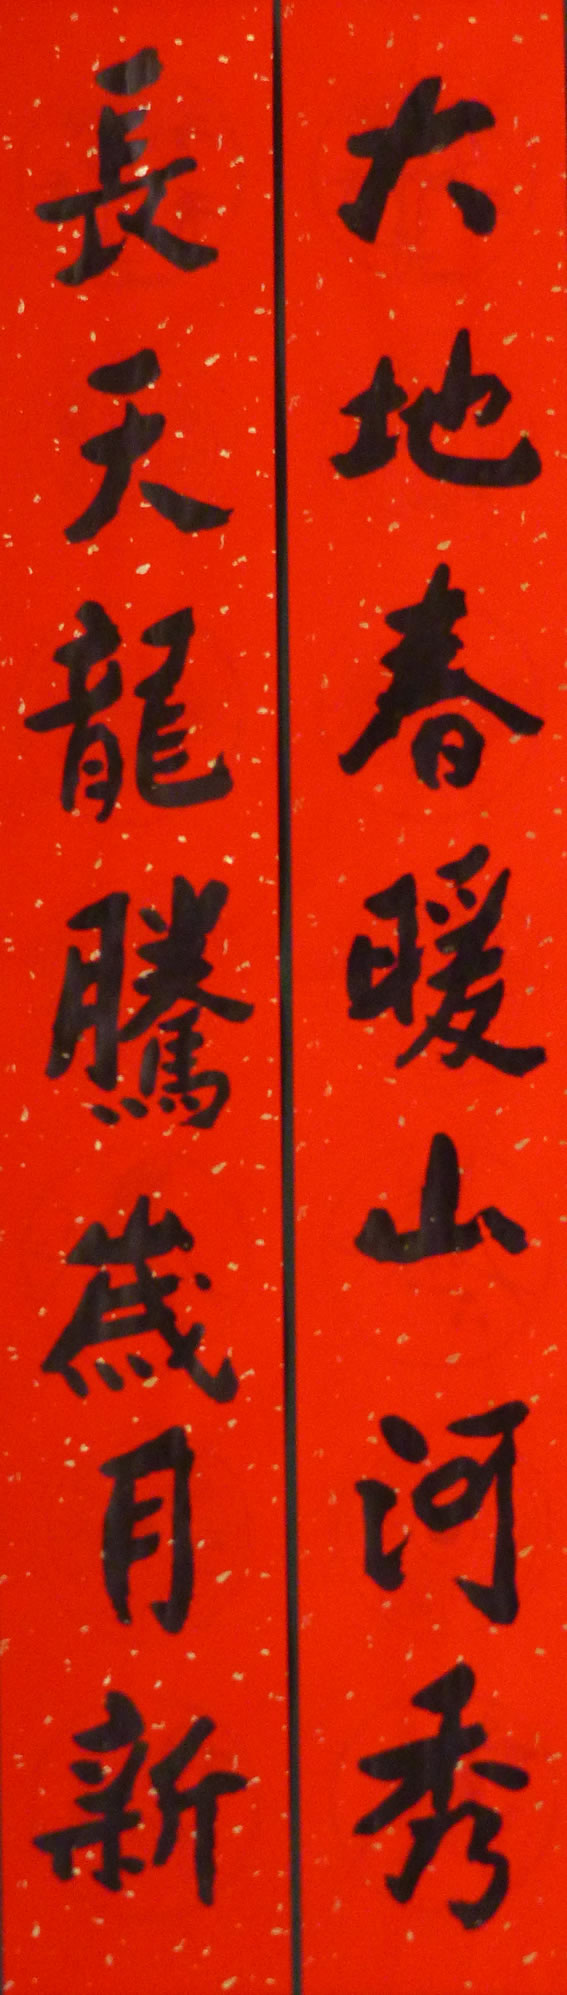 大地春暖山河秀
長天龍騰歲月新